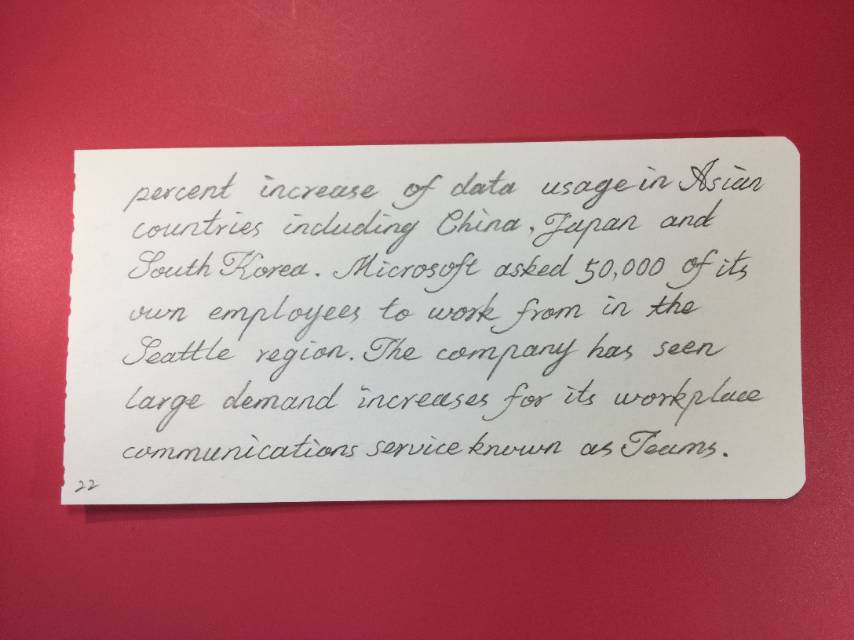 percent increase of data usage in Asian
countries including China, Japan and
South Korea. Microsoft asked 50,000 of its
own employees to work from in the
Seattle region. The company has seen
large demand increases for its workplace
communications service known as Teams.
22